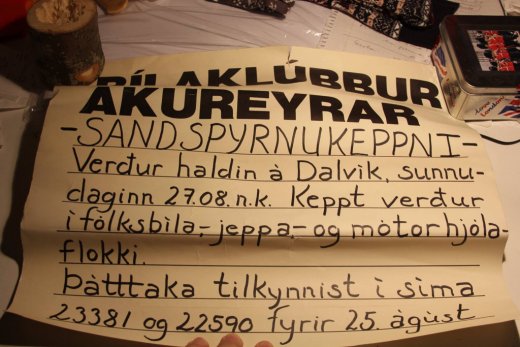 BÍLAKLÚBBUR
AKUREYRAR
-SANDSPYRNUKEPPNI-
Verður haldin à Dalvik, sunnu-
daginn 27.08.n.k. Keppt verður
i fólksbila,- jeppa,- og mótor hjóla-
flokki.
Þàtttaka tilkynnist i sima
23381 og 22590 fyrir 25. ágúst